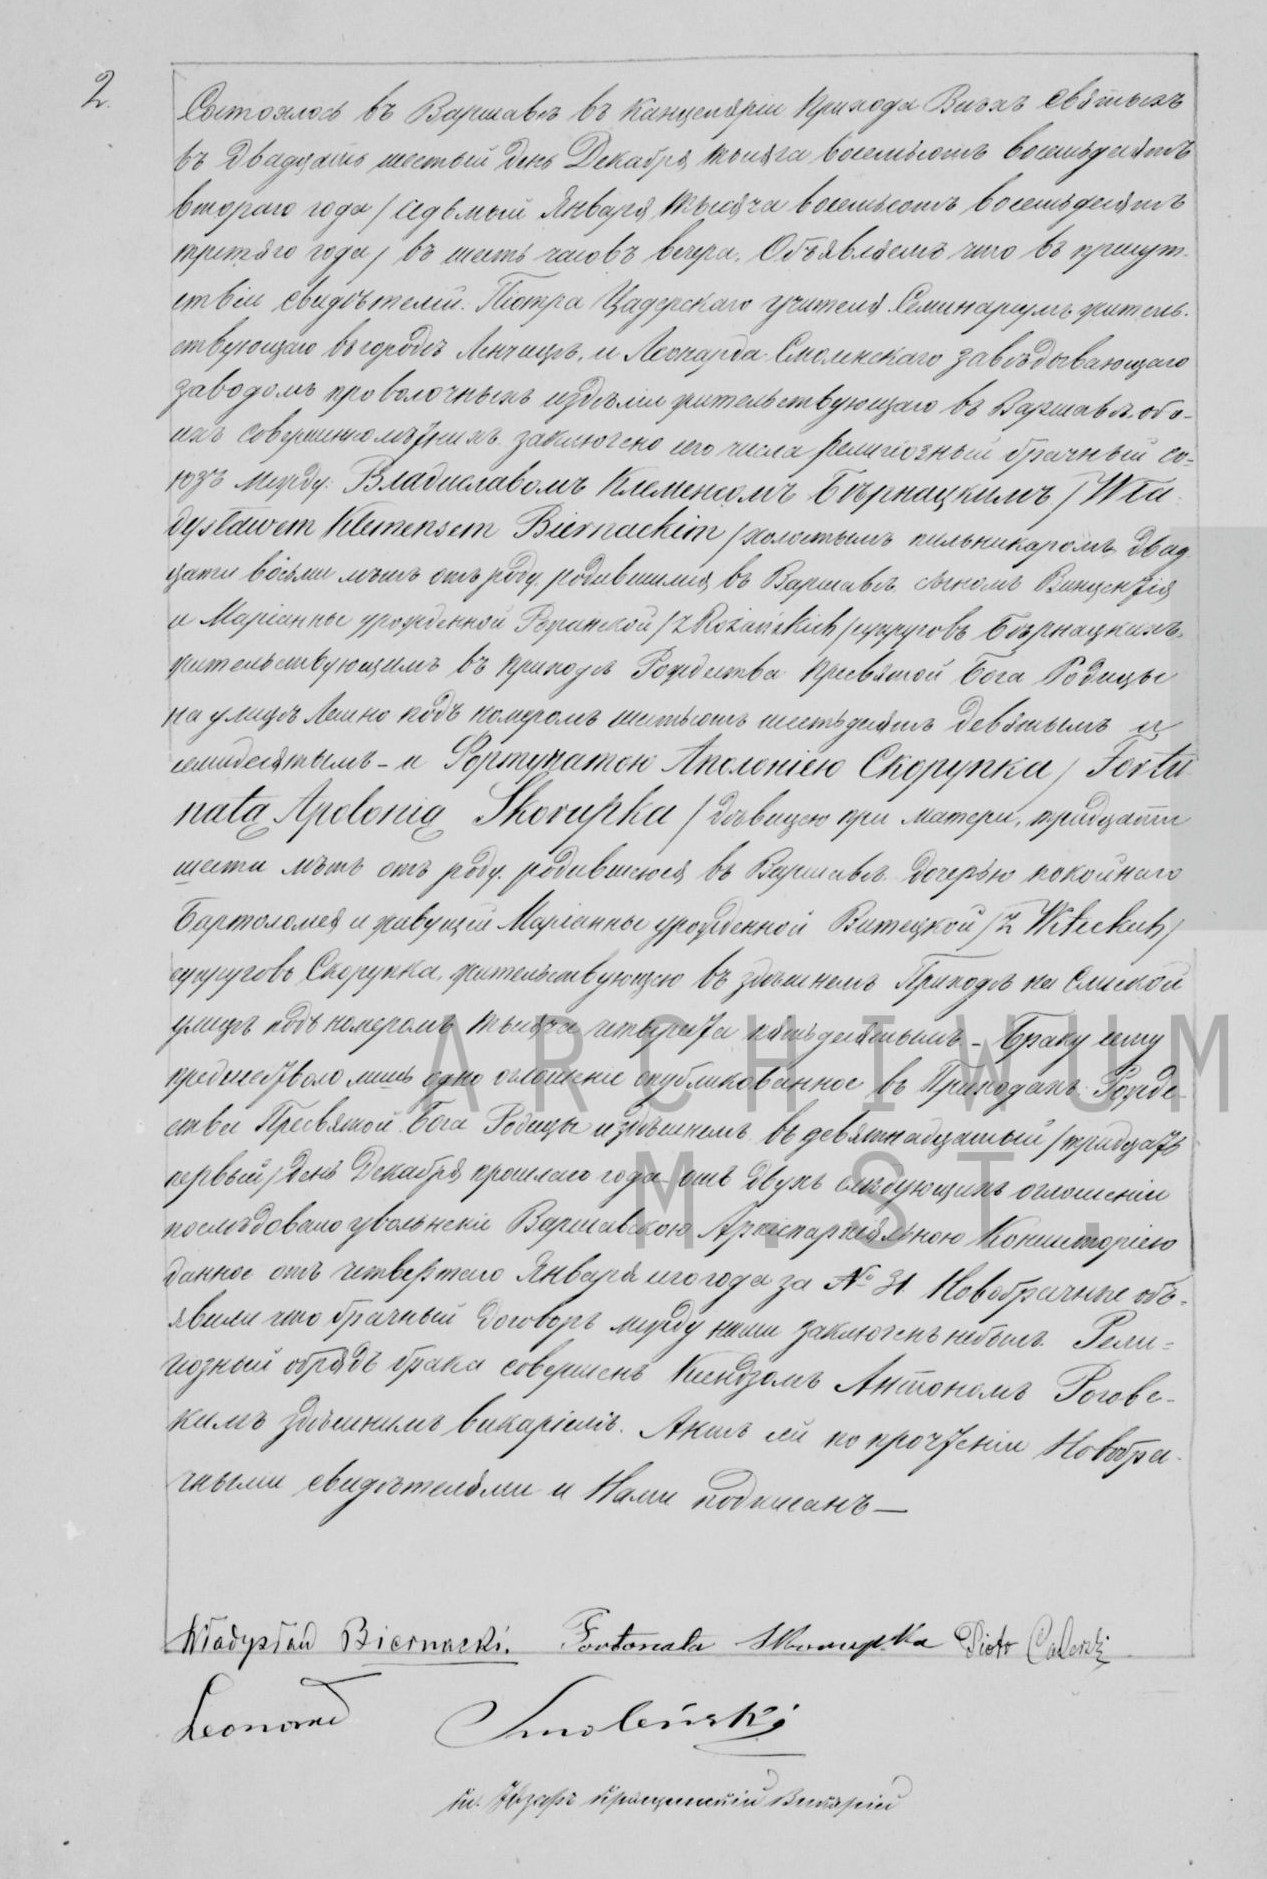 2.
Состоялось въ Варшавѣ въ Канцеляріи Прихода Всѣхъ Святыхъ
въ двадцать шестый день Декабря тысяча восемьсотъ восемьдесятъ
втораго года / седьмый Января тысяча восемьсотъ восемьдесятъ
третяго года / въ шесть часовъ вечера. Объявляемъ что въ присут-
ствіи свидѣтелей. Піотра Учителя Семинаріумъ житель-
ствующаго въ городѣ Ленчицѣ, и Леонарда Смоленскаго завѣдывающаго
заводомъ проволочныхъ издѣлій жительствующаго въ Варшавѣ, обо-
ихъ совершеннолѣтнихъ, заключено сего числа религіозный брачный со-
юзъ между: Владиславомъ Клеменсомъ Бѣрнацкимъ / Wła
dysławem Klemensem Biernackim / холостымъ пильникаромъ двад
цати восьми лѣтъ отъ роду, родившимся въ Варшавѣ сыномъ Винцентія
и Маріанны урожденной Рожанской / z Rożańskich / супруговъ Бѣрнацкихъ,
жительствующимъ въ приходѣ Рождества Пресвятой Бога Родицы
на улицѣ Лешно подъ номеромъ шестьсотъ шестьдесятъ девятымъ и
семидесятымъ – и Фортунатою Аполоніею Скорупка / Fortu
natą Apolonią Skorupka / дѣвицею при матери, тридцати
шести лѣтъ отъ роду, родившеюся въ Варшавѣ дочерью покойнаго
Бартоломея и живущей Маріанны урожденной Витецкой / z Witeckich /
супруговъ Скорупка, жительствующею въ здѣшнемъ Приходѣ на Слиской
улицѣ подъ номеромъ тысяча четыреста пятьдесятымъ – Браку сему
предшествовало лишь одно оглашеніе опубликованное въ Приходахъ: Рожде-
ства Пресвятой Бога Родицы и здѣшнемъ въ девятнадцатый / тридцать
первый / день Декабря прошлаго года – отъ двухъ слѣдующихъ оглашеній
послѣдовало увольненіе Варшавскою Архіепархіяльною Консисторіею
данное отъ четвертаго Января сего года за № 31. Новобрачные объ-
явили что брачный договоръ между ними заключенъ небылъ. Рели-
гіозный обрядъ брака совершенъ Ксендзомъ Антономъ Роговс-
кимъ здѣшнимъ викаріемъ. Актъ сей по прочтеніи Новобра-
чными свидѣтелями и Нами подписанъ —
Władysław Biernacki. Fortonata Skorupka Piotr
Leonard Smoleński
Кс. Викарій
ARCHIWUM
M. ST.